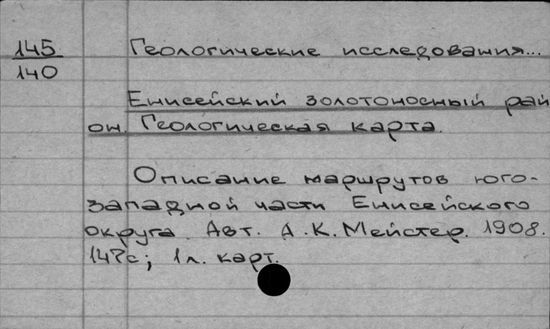 145 Геологические исследования...
140
Енисейский золотоносный рай
он. Геологическая карта.
Описание маршрутов юго-
западной части Енисейского
округа. Авт. А.К. Мейстер. 1908.
147с; 1л. карт.